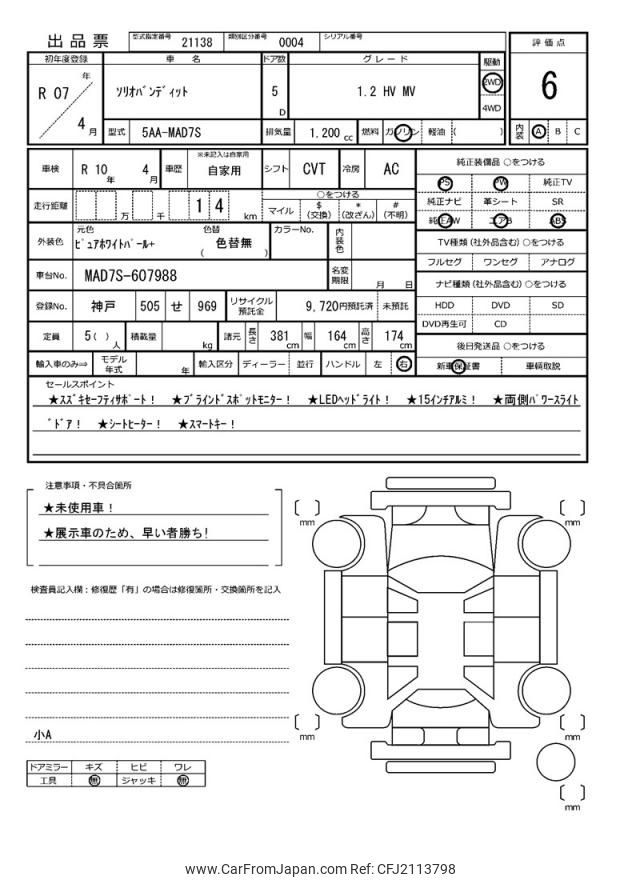 出品票 型式指定番号 21138 類別区分番号 0004 シリアル番号
評価点
6
内装 A B C
初年度登録 車名 ドア数 グレード 駆動
R 07 年 4 月 ソリオバンディット 5 D 1.2 HV MV 2WD 4WD
型式 5AA-MAD7S 排気量 1.200 cc 燃料 ガソリン 軽油 ( )
車検 R 10 年 4 月 車歴 ※未記入は自家用 自家用 シフト CVT 冷房 AC
走行距離 万 千 1 4 km ○をつける
マイル $ (交換) * (改ざん) # (不明)
外装色 元色 ピュアホワイトパール+ 色替 ( 色替無 ) カラーNo. 内装色
車台No. MAD7S-607988 名変期限 月 日
登録No. 神戸 505 せ 969 リサイクル預託金 9,720円預託済 未預託
定員 5( ) 人 積載量 kg 諸元 長さ 381 cm 幅 164 cm 高さ 174 cm
輸入車のみ⇒ モデル年式 年 輸入区分 ディーラー 並行 ハンドル 左 右
純正装備品 ○をつける
PS PW 純正TV
純正ナビ 革シート SR
純正AW エアB ABS
TV種類 (社外品含む) ○をつける
フルセグ ワンセグ アナログ
ナビ種類 (社外品含む) ○をつける
HDD DVD SD
DVD再生可 CD
後日発送品 ○をつける
新車保証書 車輌取説
セールスポイント
★スズキセーフティサポート! ★ブラインドスポットモニター! ★LEDヘッドライト! ★15インチアルミ! ★両側パワースライト
゛ドア! ★シートヒーター! ★スマートキー!
注意事項・不具合箇所
★未使用車!
★展示車のため、早い者勝ち!
検査員記入欄:修復歴「有」の場合は修復箇所・交換箇所を記入
小A
ドアミラー キズ ヒビ ワレ
工具 無 ジャッキ 無
mm mm
mm mm
mm
www.CarFromJapan.com Ref: CFJ2113798